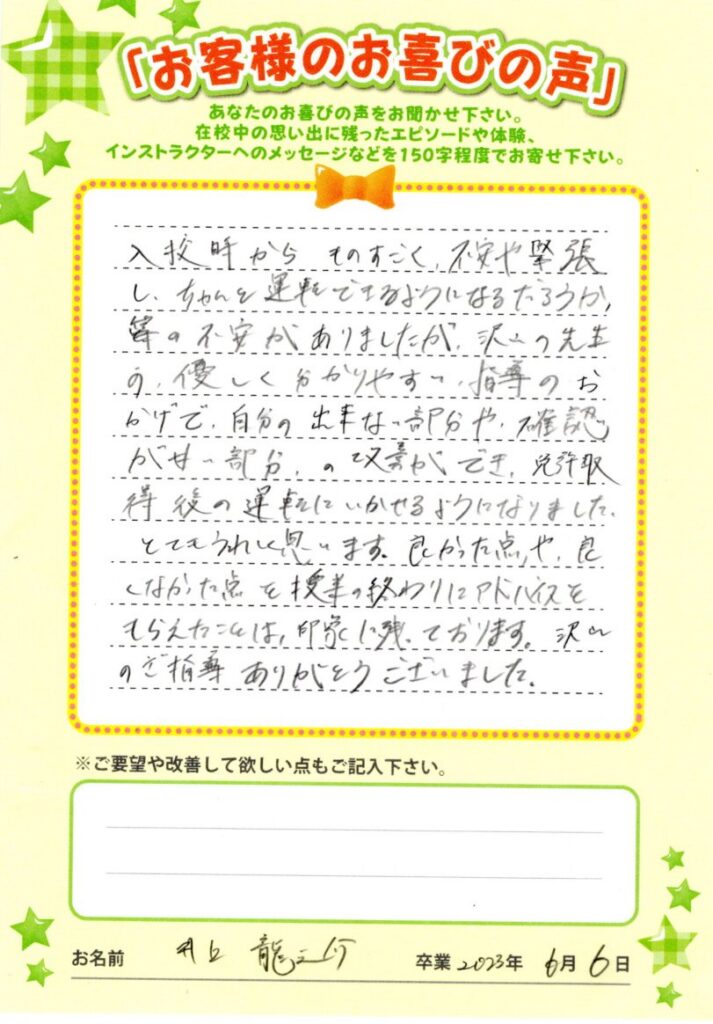 「お客様のお喜びの声」
あなたのお喜びの声をお聞かせ下さい。
在校中の思い出に残ったエピソードや体験、
インストラクターへのメッセージなどを150字程度でお寄せ下さい。
入校時から ものすごく、不安や緊張
し、ちゃんと運転できるようになるだろうか、
等の不安がありましたが、沢山の先生
の、優しく分かりやすい、指導のお
かげで、自分の出来ない部分や、確認
がせい部分、の改善ができ、免許取
得後の運転にいかせるようになりました。
とてもうれしく思います。良かった点や、良
くなかった点を授業の終わりにアドバイスを
もらえたことは、印象に残っております。沢山
のご指導 ありがとうございました。
※ご要望や改善して欲しい点もご記入下さい。
お名前 井上 龍之介 卒業 2023年 6月 6日